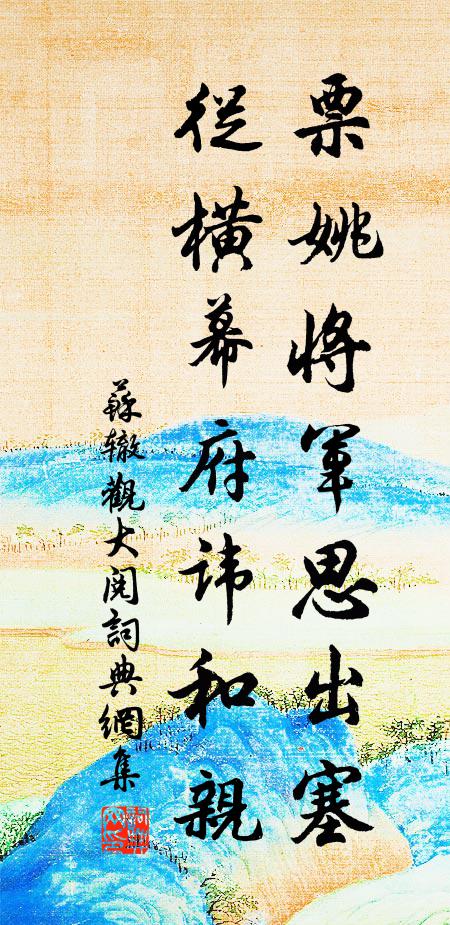 票姚將軍思出塞
從橫幕府讳和親
蘇辙觀大閱詞典網集